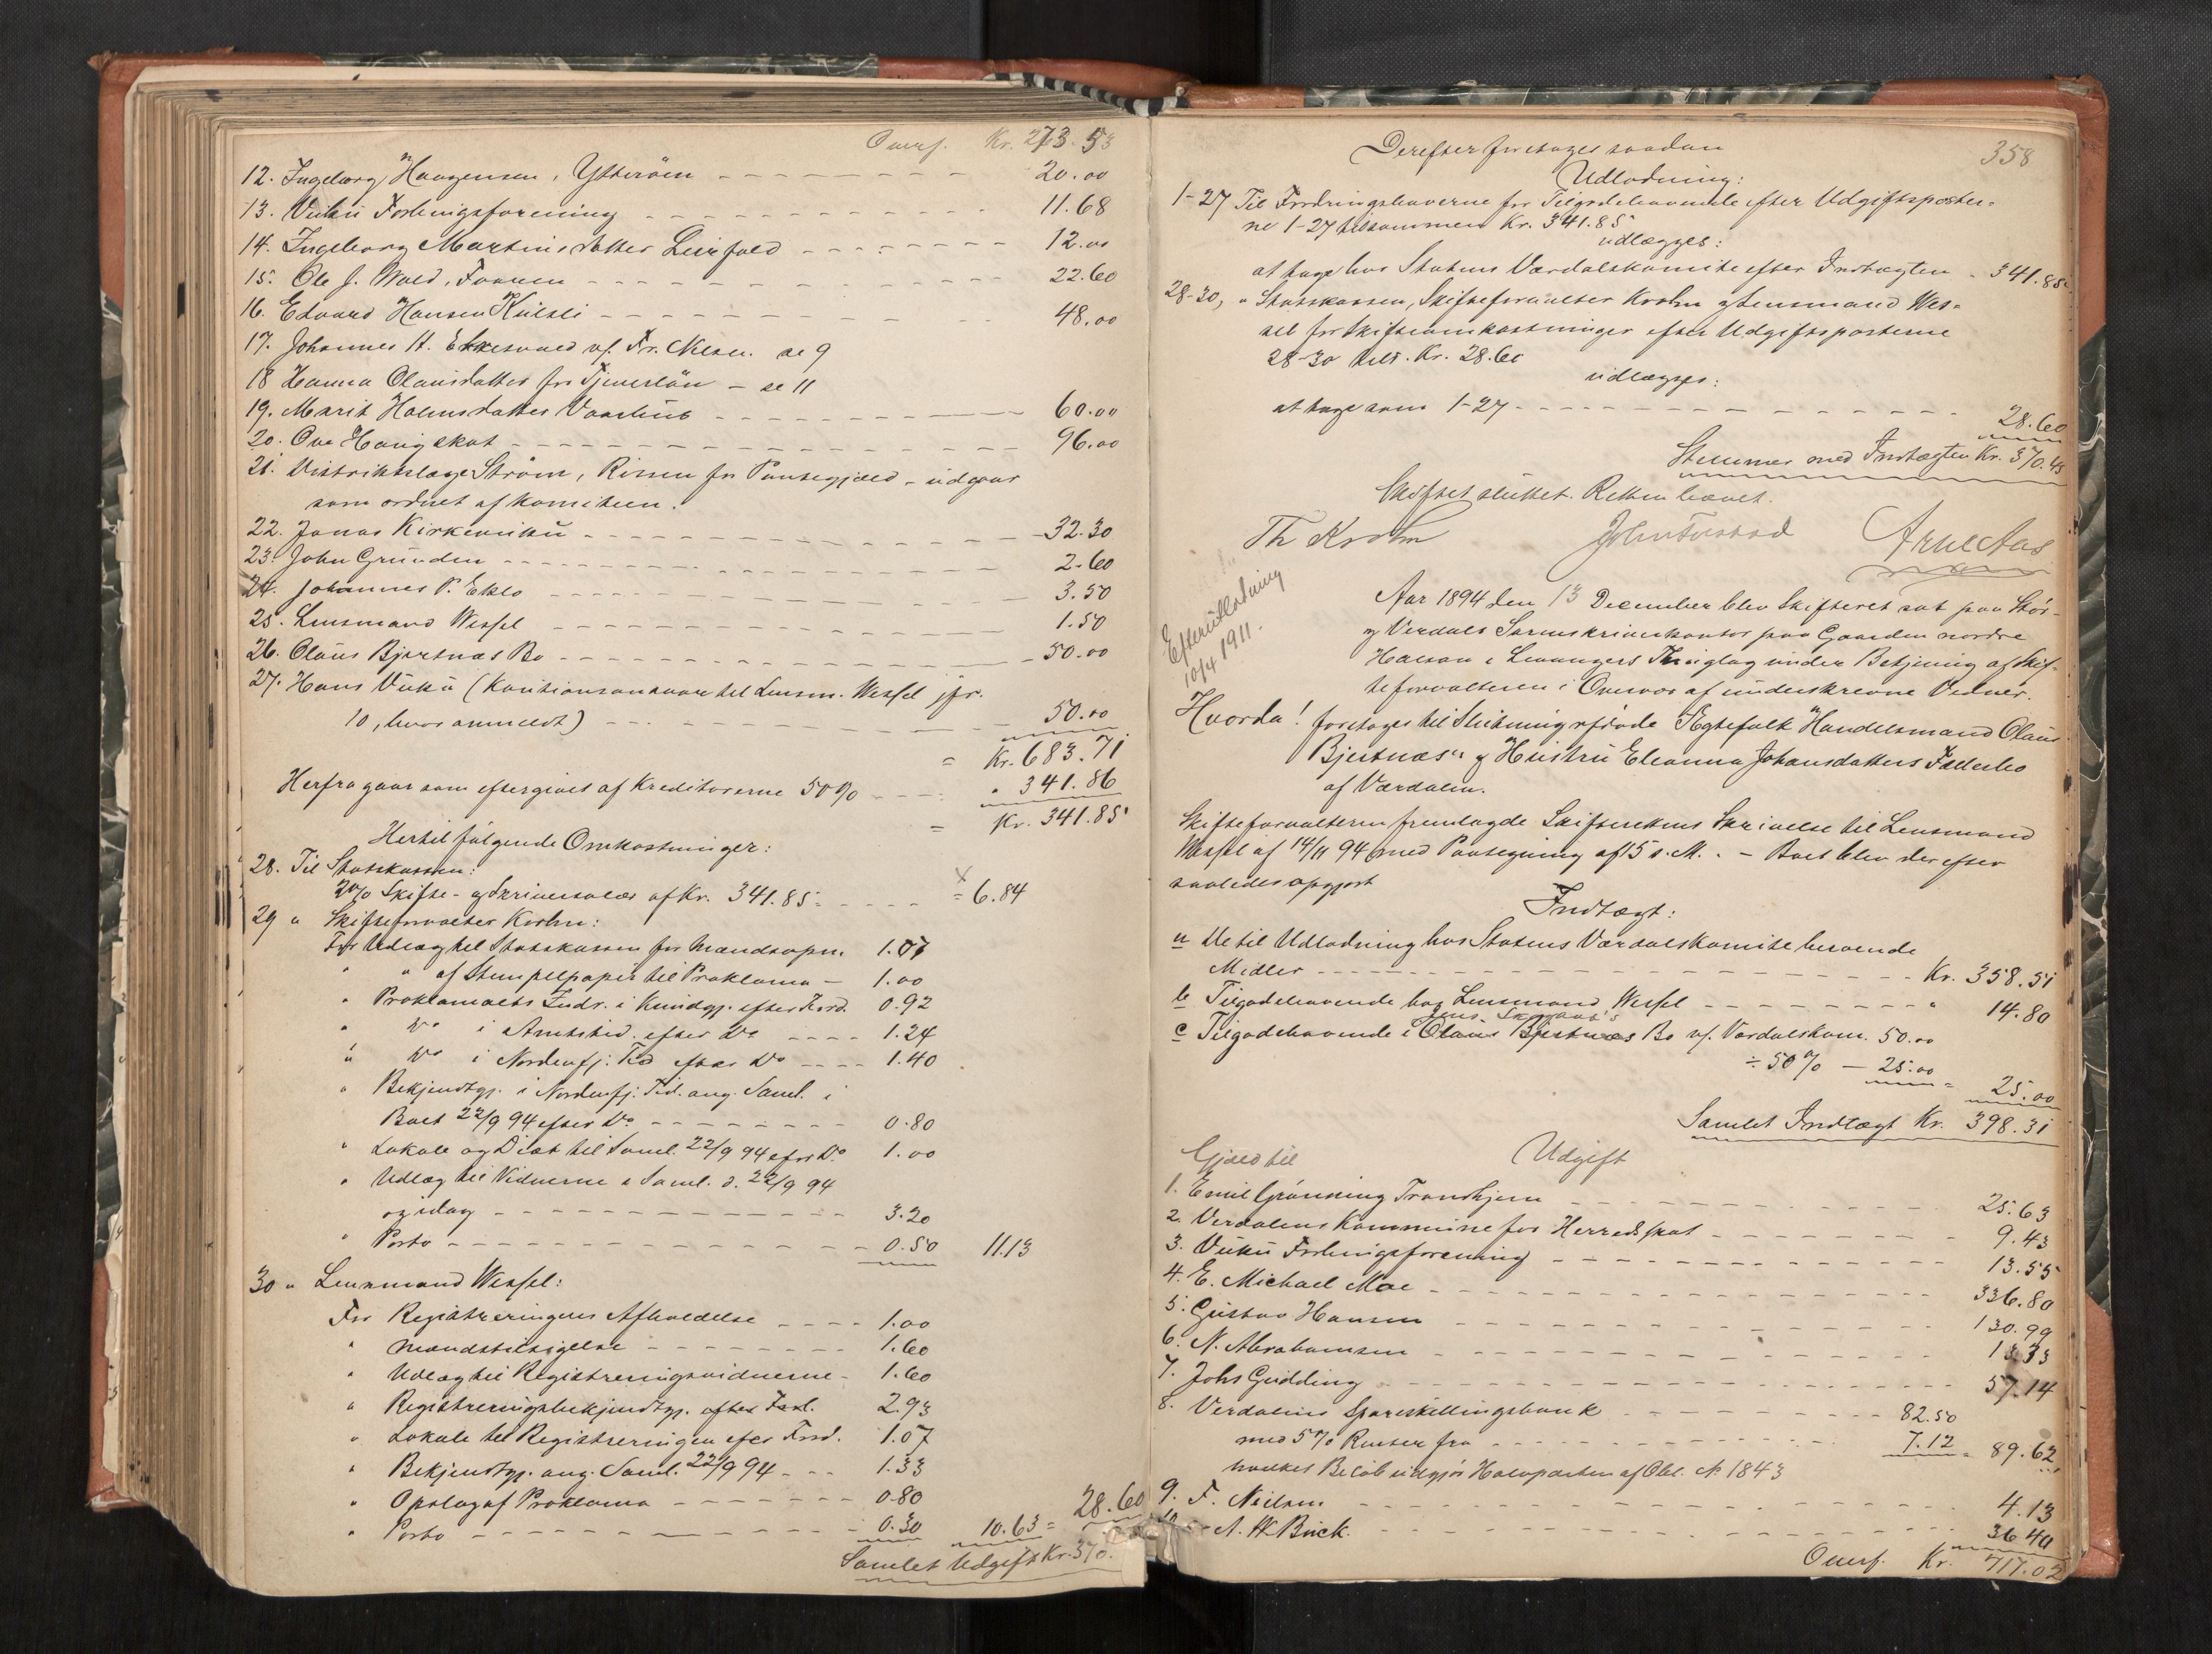 Overf. Kr. 273.53
12. Ingeborg Haagensen, Ytterøen 20.00
13. Vuku Forbrugsforening 11.68
14. Ingeborg Martinsdatter Leirfald 12.00
15. Ole J. Wold, 22.60
16. Edvard Hansen 48.00
17. Johannes H. v/. Fr. Nilsen. se 9
18 Hanna Olausdatter for Tjenerløn - se 11
19. Marit Holmsdatter 60.00
20. Ove Haugskot 96.00
21. Distriktslæge Strøm, Rissen for Pantegjæld - udgaar
som ordnet af Komiteen.
22. Jonas Kirkevuku 32.30
23. John Grunden 2.60
24. Johannes P. Eklo 3.50
25. Lensmand Wessel 1.50
26. Olaus Bjertnæs Bo 50.00
27. Hans Vuku (Kautionsansvar til Lensm. Wessel jfr.
10, hvor anmeldt) 50.00
= Kr. 683.71
Herfra gaar som eftergivet af Kreditorerne 50% " 341.86
= Kr. 341.85
Hertil følgende Omkostninger:
28. Til Statskassen:
2% Skifte- og Skriversalær af Kr. 341.85 = 6.84
29 " Skifteforvalter Krohn:
For Udlæg til Statskassen for Mændsopn. 1.07
" " af Stempelpapir til Proklama - 1.00
" Proklamaets Indr. i Kundgj. efter Kvrd. 0.92
" Do i Amtstid. efter Do 1.24
" Do i Nordenfj. Tid efter Do 1.40
" Bekjendtgj. i Nordenfj. Tid. ang. Saml. i
Boet 22/9 94 efter Do 0.80
" Lokale og Diæt til Saml. 22/9 94 efter Do 1.00
" Udlæg til Vidnerne i Saml. d. 22/9 94
og idag 3.20
" Porto 0.50 11.13
30 " Lensmand Wessel:
For Registreringens Afholdelse 1.00
" Mændstilsigelse 1.60
" Udlæg til Registreringsvidnerne 1.60
" Registreringsbekjendtgj. efter 2.93
" Lokale til Registreringen efter 1.07
" Bekjendtgj. ang. Saml. 22/9 94 1.33
" Opslag af Proklama 0.80
" Porto 0.30 10.63 = 28.60
Samlet Udgift Kr. 370.
358
Derefter foretoges saadan
Udlodning:
1-27 Til Fordringshaverne for Tilgodehavende efter Udgiftsposter-
ne 1-27 tilsammen Kr. 341.85
udlægges:
at tage hos Statens Værdalskomite efter Indtægten - 341.85
28-30, " Statskassen, Skifteforvalter Krohn og Lensmand Wes-
sel for Skifteomkostninger efter Udgiftsposterne
28-30 tils. Kr. 28.60
udlægges:
at tage som 1-27 28.60
Stemmer med Indtægten Kr. 370.45
Skiftet sluttet. Retten hævet.
Th Krohn John Arne Aas
Efterudlodning
10/4 1911.
Aar 1894 den 13 December blev Skifteret sat paa Stør-
og Verdals Sorenskriverkontor paa Gaarden nordre
Halsan i Levangers Thinglag under Betjening af Skif-
teforvalteren i Overvær af underskrevne Vidner.
Hvorda! foretoges til Slutning afdøde Ægtefolk Handelsmand Olaus
Bjertnæs" og Hustru Eleanna Johansdatters Fællesbo
af Værdalen.
Skifteforvalteren fremlagde Skifterettens Skrivelse til Lensmand
Wessel af 14/11 94 med Paategning af 15 s. M. - Boet blev derefter
saaledes opgjort
Indtægt:
a De til Udlodning hos Statens Værdalskomite beroende
Midler Kr. 358.51
b Tilgodehavende hos Lensmand Wessel " 14.80
c Tilgodehavende i Olaus Bjertnæs Bo v/. Værdalskom. 50.00
÷ 50% - 25.00
25.00
Samlet Indtægt Kr. 398.31
Udgift
Gjæld til
1. Emil Grønning Trondhjem 25.63
2. Verdalens Kommune for Herredsskat 9.43
3. Vuku Forbrugsforening 13.55
4. E. Michael Moe 336.80
5. Gustav Hansen 130.99
6. N. Abrahamsen 13.33
7. Johs Gudding 57.14
8. Verdalens Spareskillingsbank 82.50
med 5% Renter fra 7.12 = 89.62
hvilket Beløb udgjør Halvparten af Obl. No 1843
9. F. Nielsen 4.13
10 - A. W. Buck 36.40
Overf. Kr. 717.02